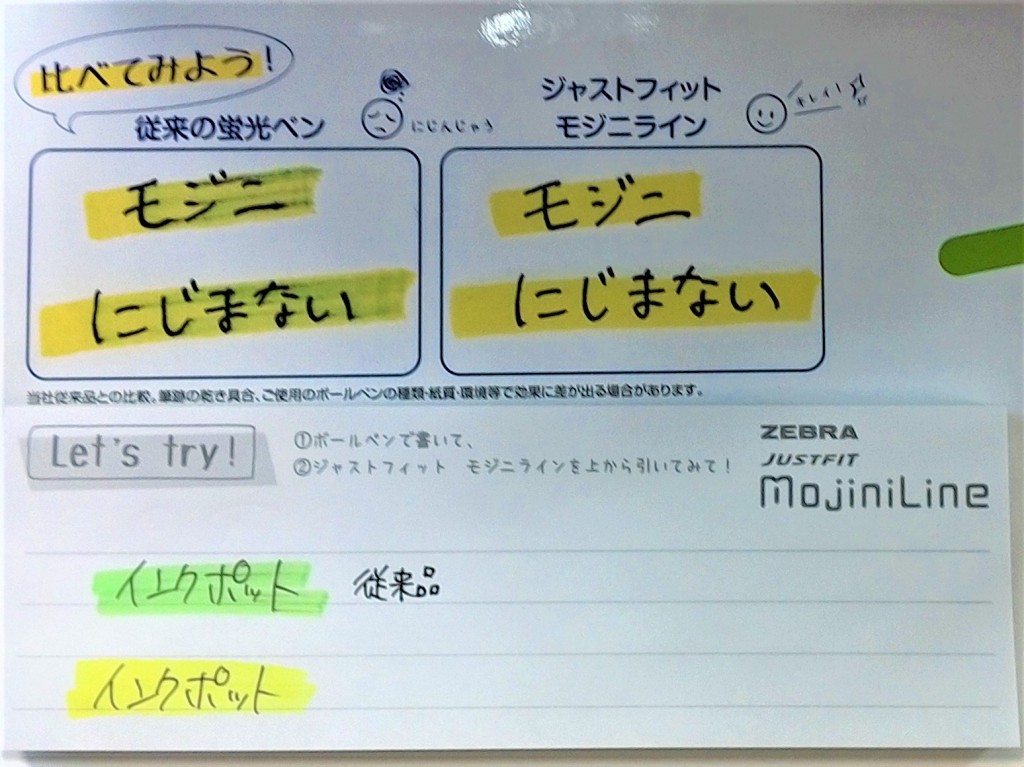 比べてみよう!
従来の蛍光ペン
にじんじゃう
ジャストフィット
モジニライン
キレイ!
モジニ
にじまない
モジニ
にじまない
当社従来品との比較。筆跡の乾き具合、ご使用のボールペンの種類・紙質・環境等で効果に差が出る場合があります。
Let's try!
①ボールペンで書いて、
②ジャストフィット モジニラインを上から引いてみて!
ZEBRA
JUSTFIT
MojiniLine
インクポット 従来品
インクポット